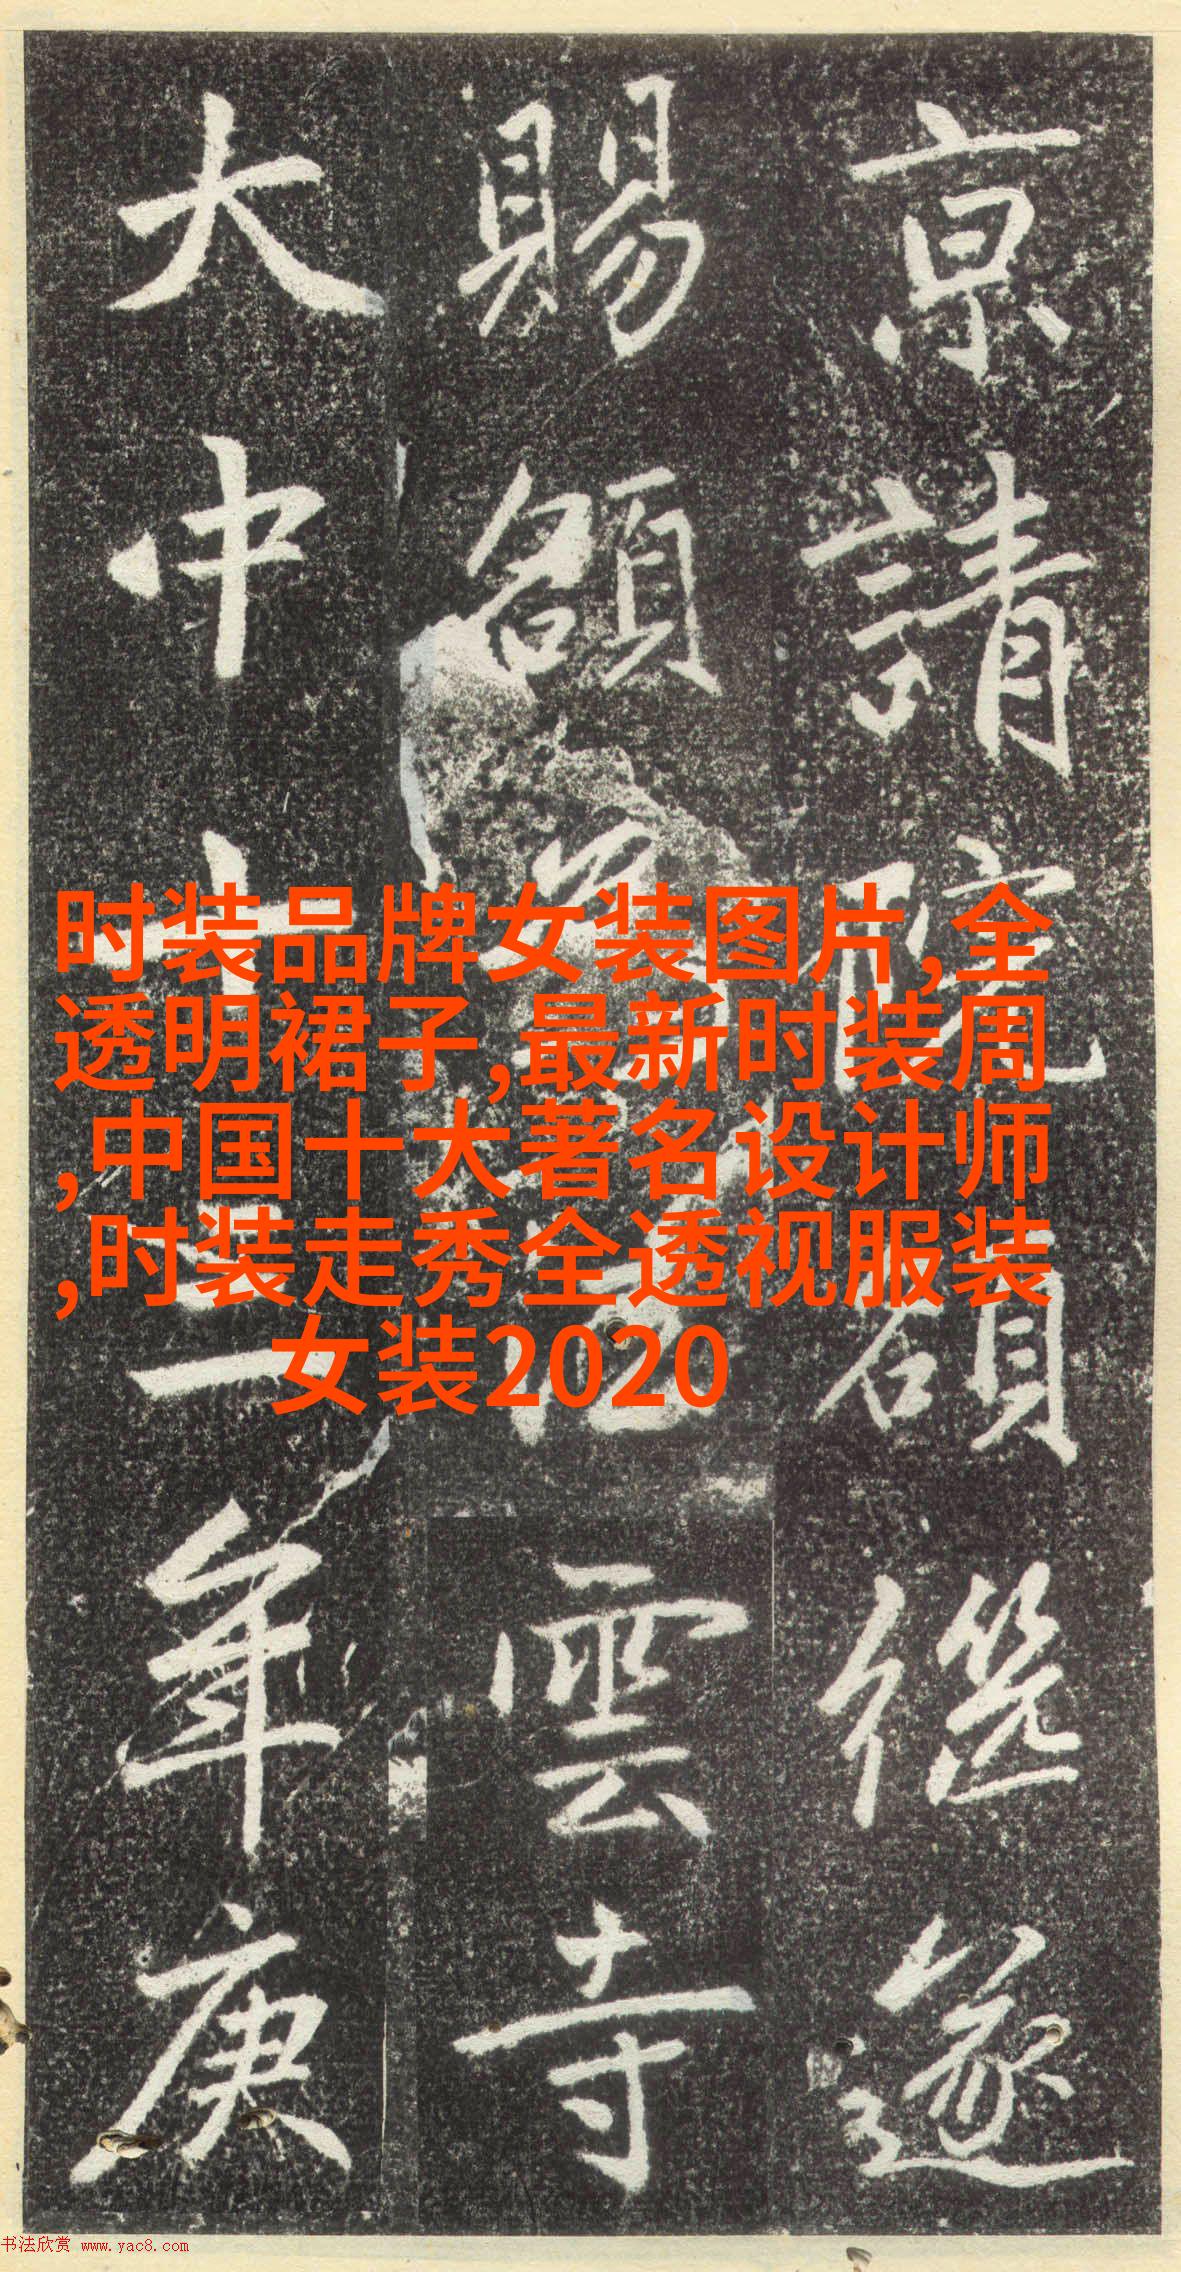 京請院額遂
賜額雲寺
大中十三年庚
时装品牌女装图片,全
透明裙子,最新时装周
,中国十大著名设计师
,时装走秀全透视服装
女装2020
书法欣赏 www.yac8.com